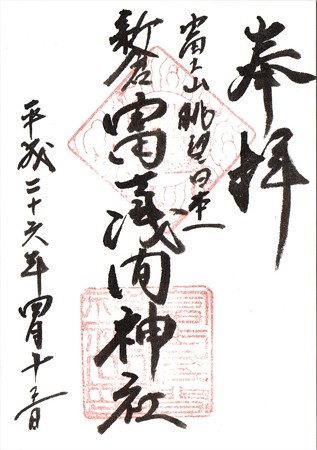 奉拝
富士山眺望日本一
新倉富士浅間神社
平成二十六年四月十三日